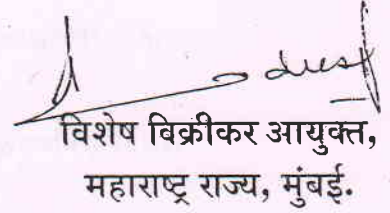 विशेष विक्रीकर आयुक्त,
महाराष्ट्र राज्य, मुंबई.